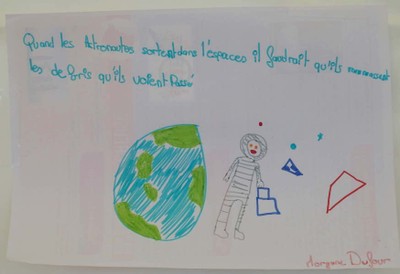 Quand les Astronautes sortent dans l'espaces il faudrait qu'ils ramassent
les débris qu'ils voient Passé
Morgane Dufour